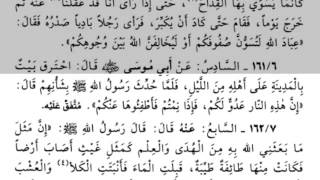 كَأَنَّمَا يُسَوِّي بِهَا الْقِدَاحَ، حَتَّى إِذَا رَأَى أَنَّا قَدْ عَقَلْنَا عَنْهُ ثُمَّ
خَرَجَ يَوْماً، فَقَامَ حَتَّى كَادَ أَنْ يُكَبِّرَ، فَرَأَى رَجُلاً بَادِياً صَدْرُهُ فَقَالَ:
«عِبَادَ اللَّهِ لَتُسَوُّنَّ صُفُوفَكُمْ أَوْ لَيُخَالِفَنَّ اللَّهُ بَيْنَ وُجُوهِكُمْ».
١٦١/٦ ـ السَّادِسُ: عَنْ أَبِي مُوسَى ﷺ قَالَ: احْتَرَقَ بَيْتٌ
بِالْمَدِينَةِ عَلَى أَهْلِهِ مِنَ اللَّيْلِ، فَلَمَّا حُدِّثَ رَسُولُ اللَّهِ ﷺ بِشَأْنِهِمْ قَالَ:
«إِنَّ هَذِهِ النَّارَ عَدُوٌّ لَكُمْ، فَإِذَا نِمْتُمْ فَأَطْفِئُوهَا عَنْكُمْ». مُتَّفَقٌ عَلَيْهِ.
١٦٢/٧ ـ السَّابِعُ: عَنْهُ قَالَ: قَالَ رَسُولُ اللَّهِ ﷺ: «إِنَّ مَثَلَ
مَا بَعَثَنِي اللَّهُ بِهِ مِنَ الْهُدَى وَالْعِلْمِ كَمَثَلِ غَيْثٍ أَصَابَ أَرْضاً
فَكَانَتْ مِنْهَا طَائِفَةٌ طَيِّبَةٌ، قَبِلَتِ الْمَاءَ فَأَنْبَتَتِ الْكَلَأَ(٤) وَالْعُشْبَ